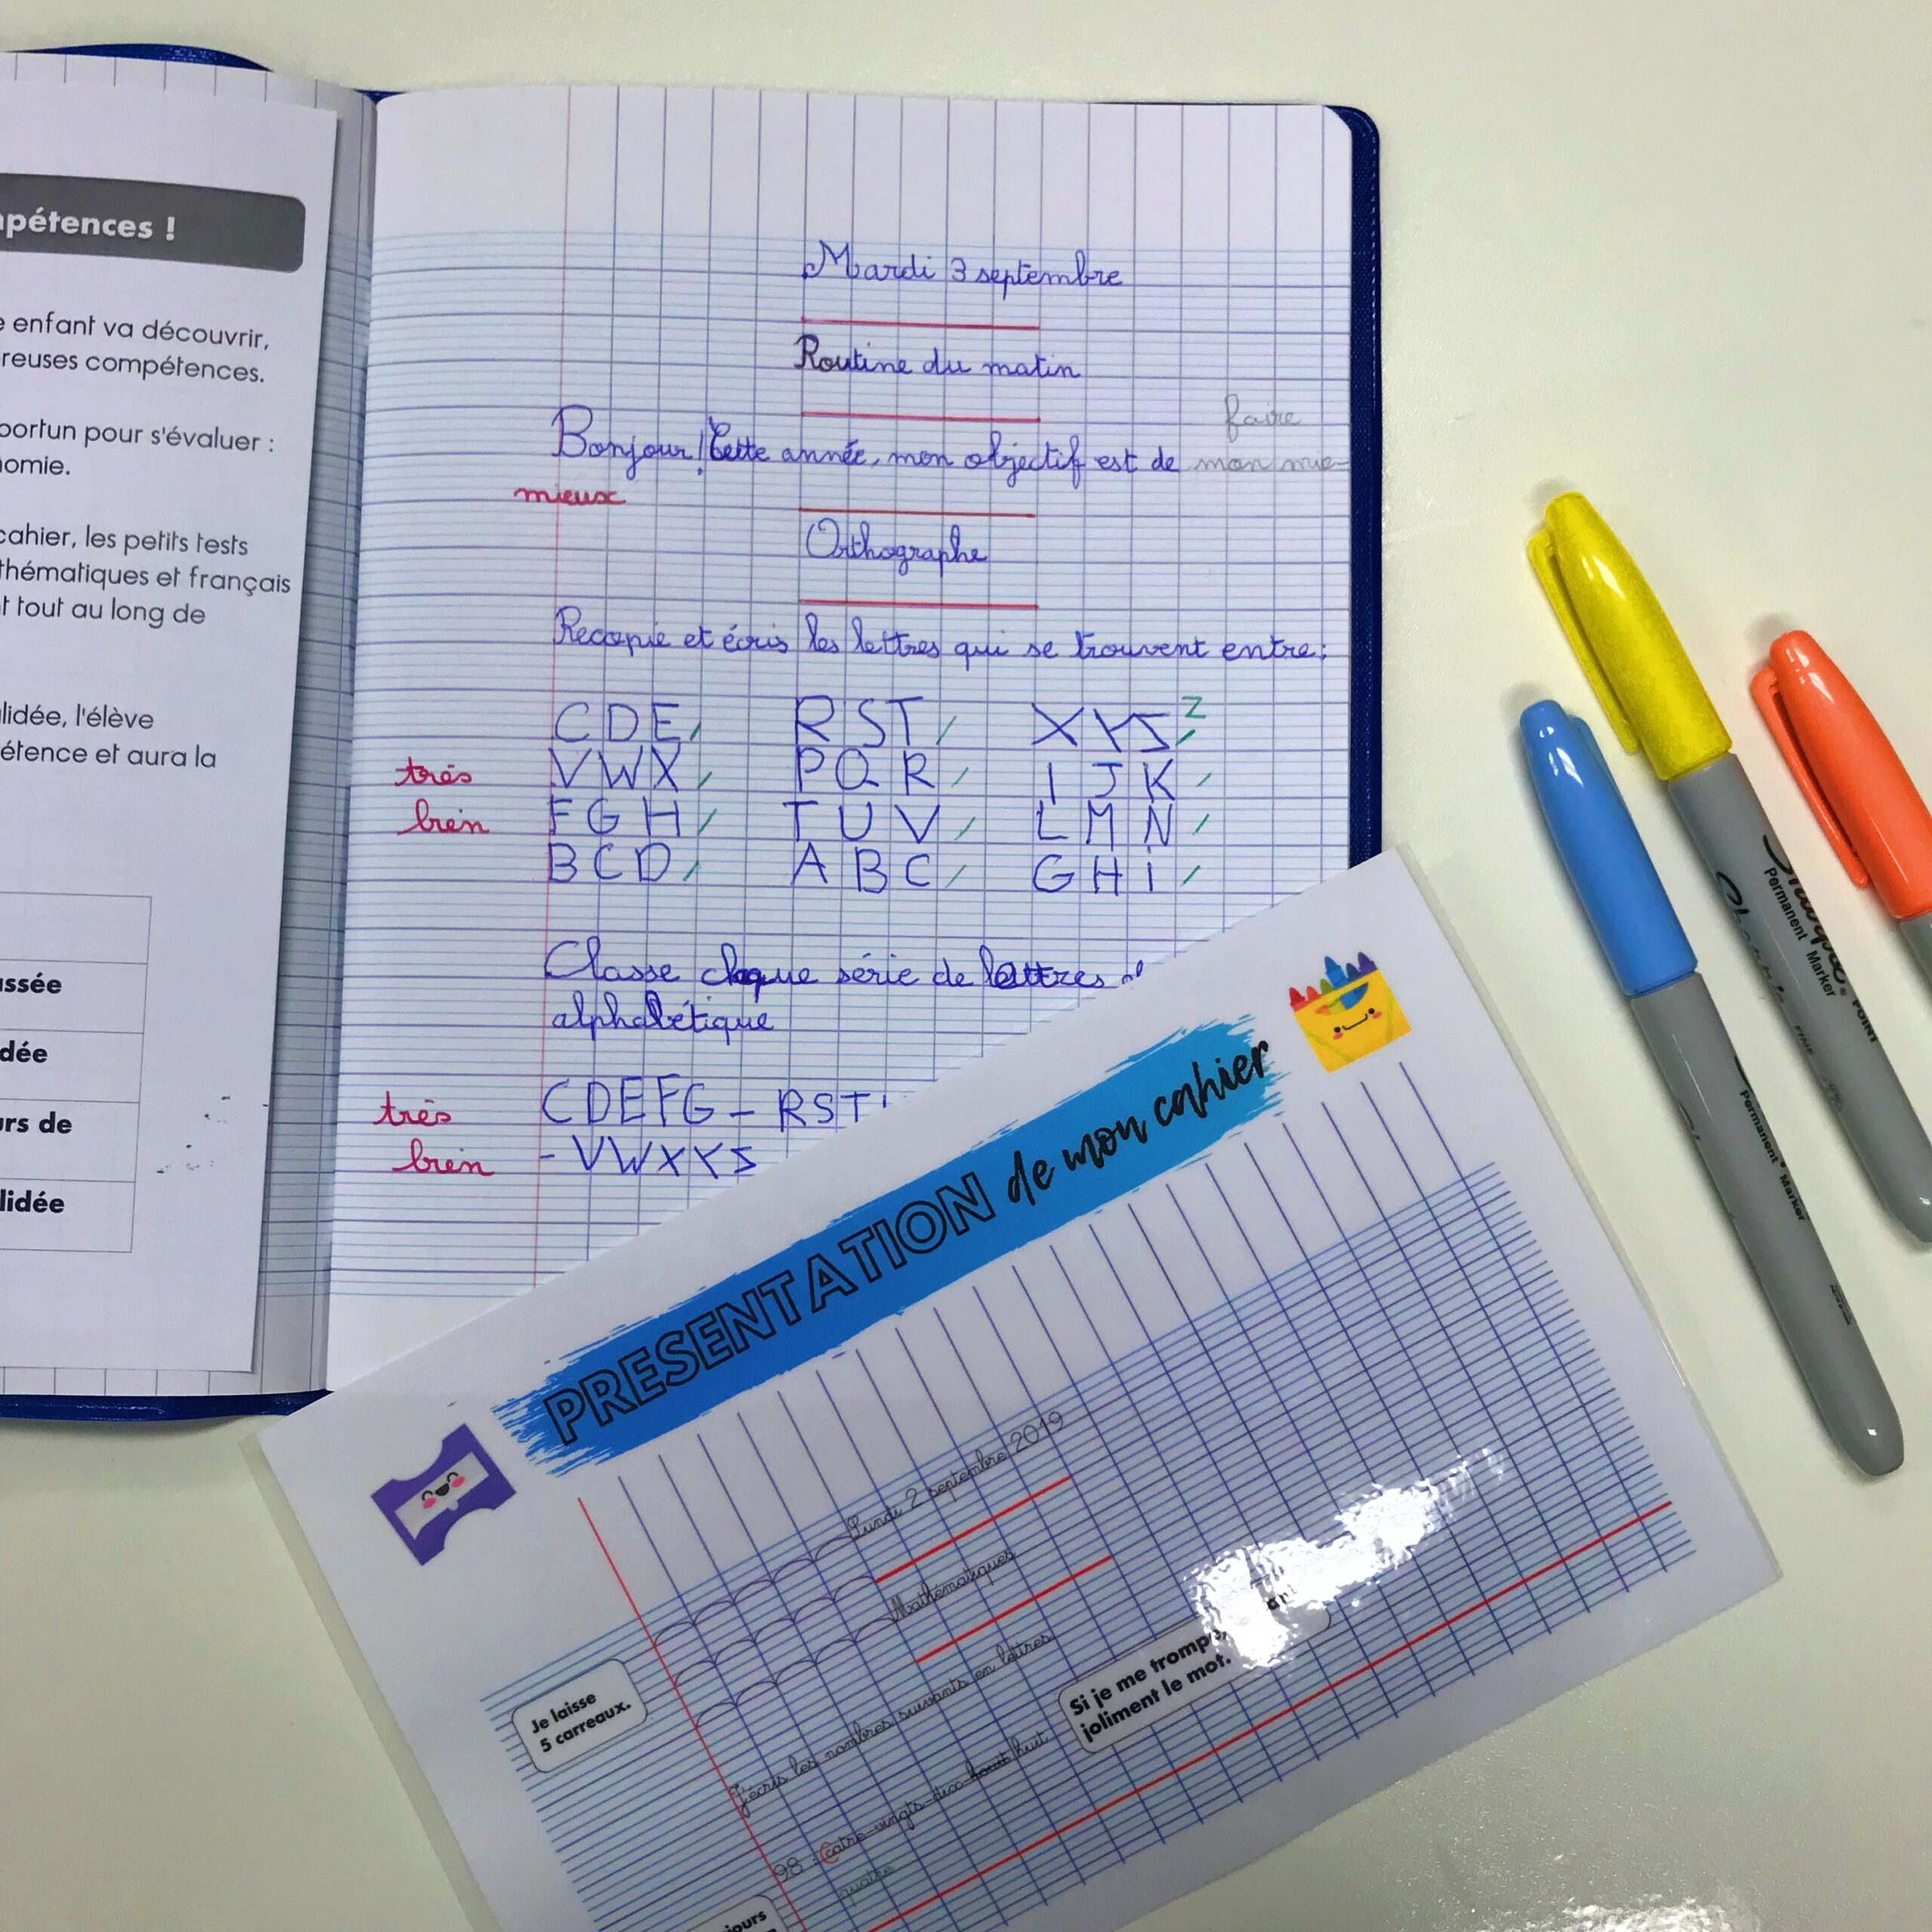 pétences !
enfant va découvrir,
reuses compétences.
portun pour s'évaluer :
omie.
cahier, les petits tests
thématiques et français
t tout au long de
lidée, l'élève
étence et aura la
ssée
dée
rs de
lidée
Mardi 3 septembre
Routine du matin
faire
Bonjour ! Cette année, mon objectif est de mon mie-
mieux
Orthographe
Recopie et écris les lettres qui se trouvent entre :
CDE, RST, XYS, Z
très VWX, PQR, IJK,
bien FGH, TUV, LMN,
BCD, ABC, GHi,
Classe chaque série de lettres
alphabétique
très CDEFG - RST
bien - VWXYS
PRESENTATION de mon cahier
Lundi 2 septembre 2019
Mathématiques
Je laisse
5 carreaux.
J'écris les nombres suivants en lettres
Si je me tromp
joliment le mot.
98 : Catre-vingts-dix-huit huit
quatre
jours
Sharpie
Permanent Marker
FINE POINT
Permanent Marker